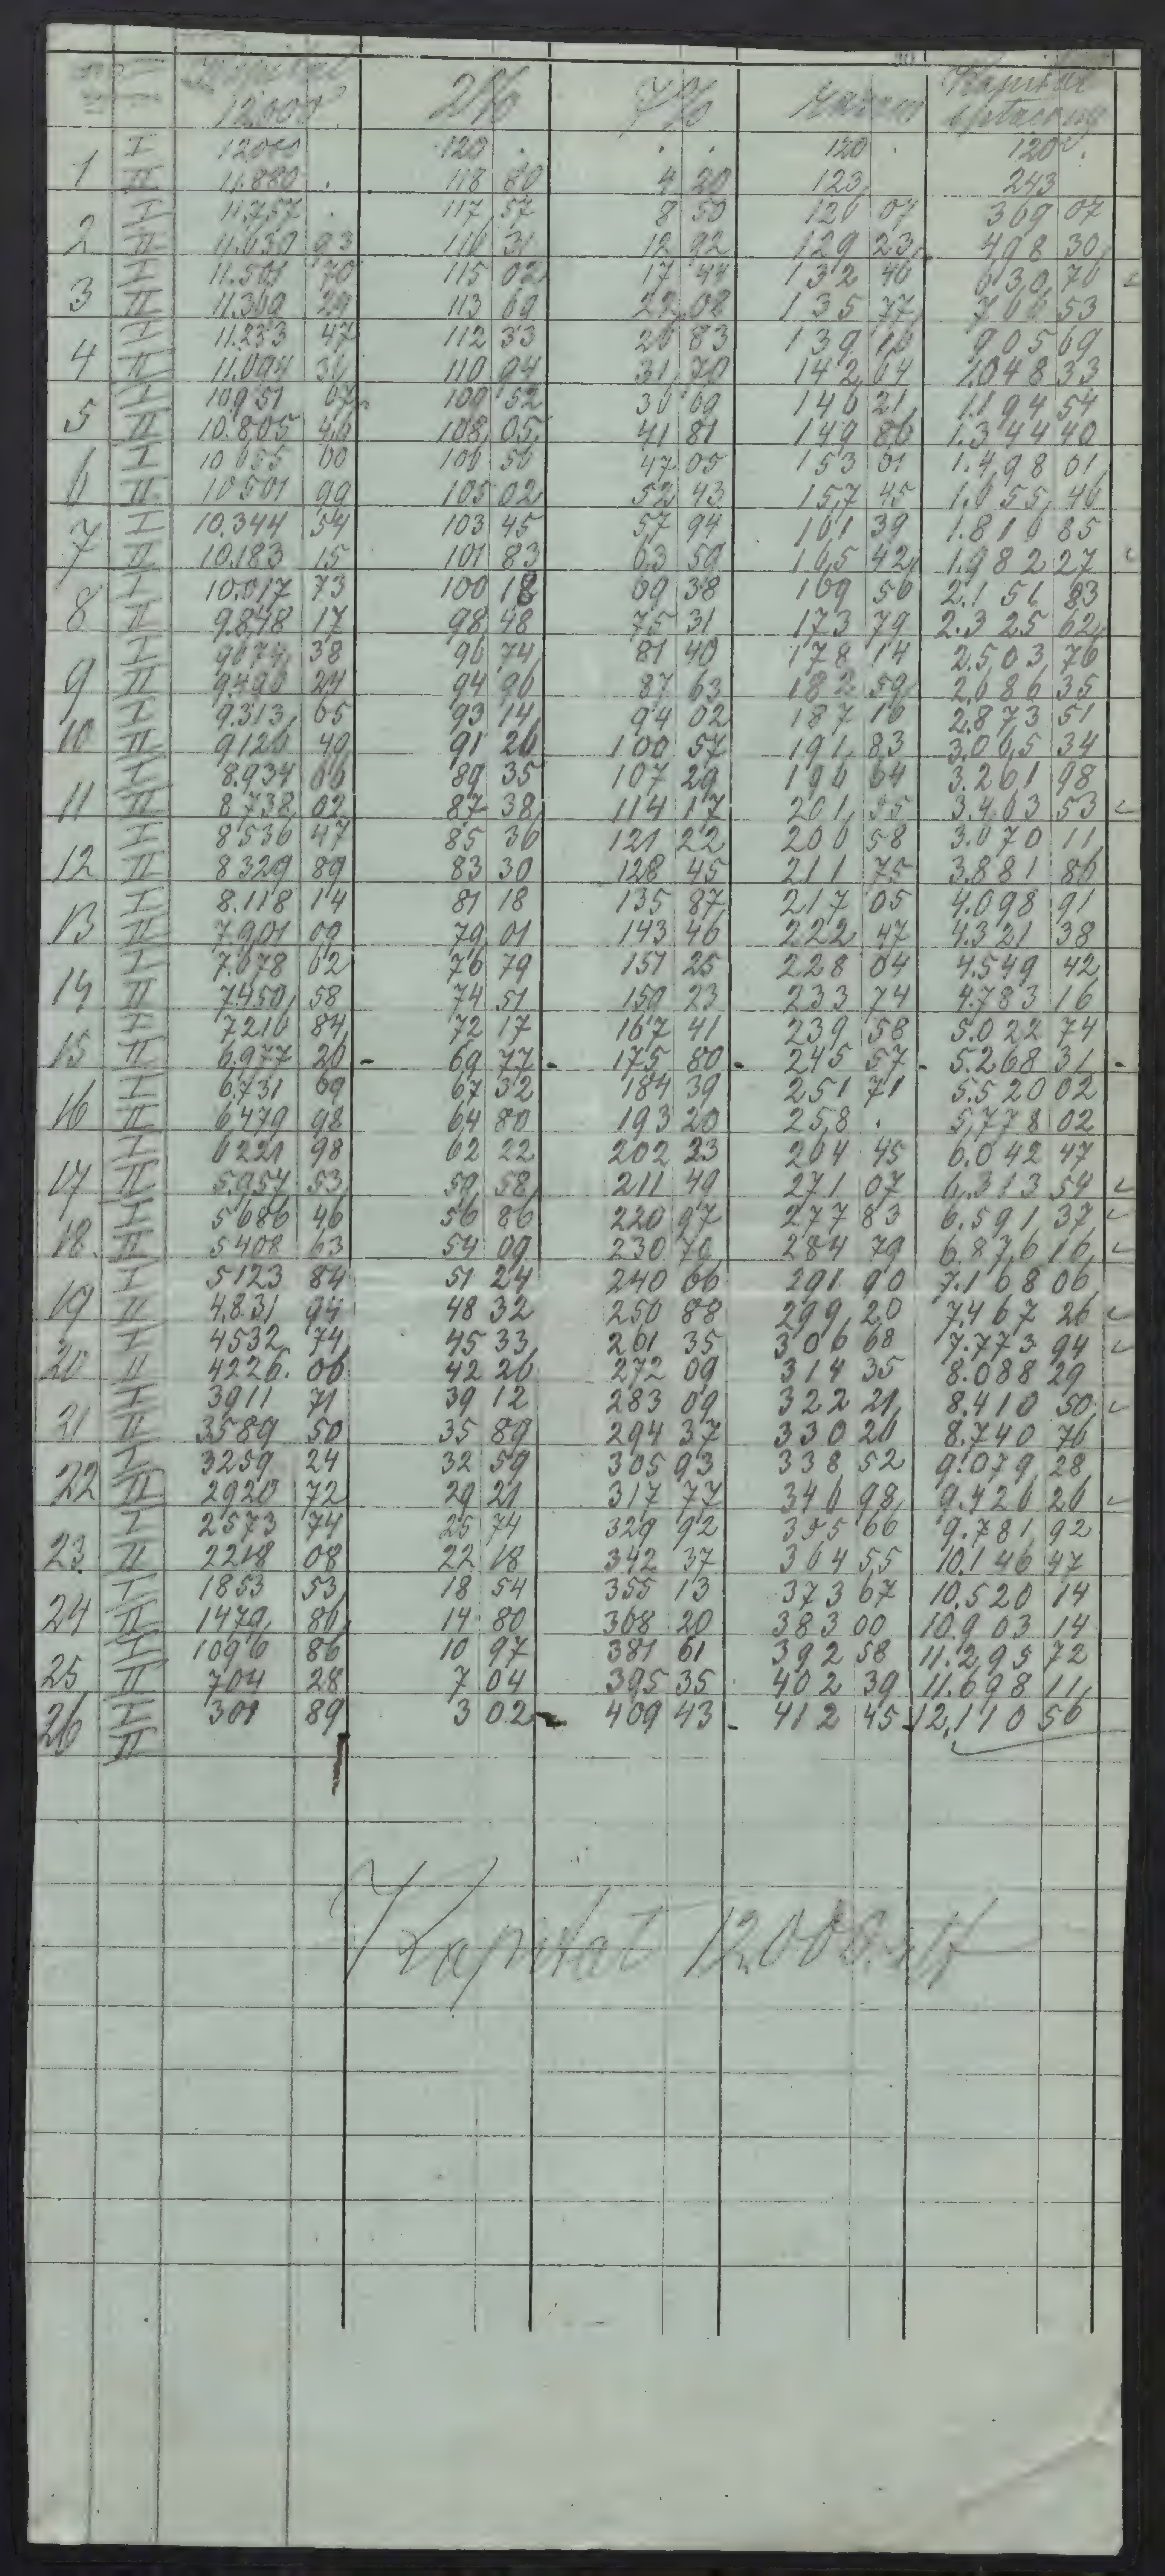 12.000 2% 7% Razem Kapitał spłacony
1 I 12.000 120 . . . 120 . 120 .
II 11.880 . 118 80 4 20 123 243
2 I 11.757 . 117 57 8 50 126 07 369 07
II 11.630 93 116 31 12 92 129 23 498 30
3 I 11.501 70 115 02 17 44 132 46 630 76
II 11.369 24 113 69 22 08 135 77 766 53
4 I 11.233 47 112 33 26 83 139 16 905 69
II 11.094 31 110 94 31 70 142 64 1.048 33
5 I 10951 67 109 52 36 69 146 21 1.194 54
II 10.805 46 108 05 41 81 149 86 1.344 40
6 I 10655 60 106 56 47 05 153 61 1.498 01
II 10501 99 105 02 52 43 157 45 1.655 46
7 I 10.344 54 103 45 57 94 161 39 1.816 85
II 10.183 15 101 83 63 59 165 42 1.982 27
8 I 10.017 73 100 18 69 38 169 56 2.151 83
II 9.848 17 98 48 75 31 173 79 2.325 62
9 I 9674 38 96 74 81 40 178 14 2.503 76
II 9.496 24 94 96 87 63 182 59 2.686 35
10 I 9.313 65 93 14 94 02 187 16 2.873 51
II 9126 49 91 26 100 57 191 83 3.065 34
11 I 8.934 66 89 35 107 29 196 64 3.261 98
II 8.738 02 87 38 114 17 201 55 3.463 53
12 I 8536 47 85 36 121 22 206 58 3.670 11
II 8329 89 83 30 128 45 211 75 3.881 86
13 I 8.118 14 81 18 135 87 217 05 4.098 91
II 7.901 09 79 01 143 46 222 47 4.321 38
14 I 7.678 62 76 79 151 25 228 04 4.549 42
II 7450 58 74 51 159 23 233 74 4.783 16
15 I 7216 84 72 17 167 41 239 58 5.022 74
II 6.977 26 69 77 175 80 245 57 5.268 31
16 I 6.731 69 67 32 184 39 251 71 5.520 02
II 6479 98 64 80 193 20 258 . 5.778 02
17 I 6221 98 62 22 202 23 264 45 6.042 47
II 5.957 53 59 58 211 49 271 07 6.313 54
18 I 5686 46 56 86 220 97 277 83 6.591 37
II 5408 63 54 09 230 70 284 79 6.876 16
19 I 5123 84 51 24 240 66 291 90 7.168 06
II 4.831 94 48 32 250 88 299 20 7.467 26
20 I 4532 74 45 33 261 35 306 68 7.773 94
II 4226 06 42 26 272 09 314 35 8.088 29
21 I 3911 71 39 12 283 09 322 21 8.410 50
II 3589 50 35 89 294 37 330 26 8.740 76
22 I 3259 24 32 59 305 93 338 52 9.079 28
II 2920 72 29 21 317 77 346 98 9.426 26
23 I 2573 74 25 74 329 92 355 66 9.781 92
II 2218 08 22 18 342 37 364 55 10.146 47
24 I 1853 53 18 54 355 13 373 67 10.520 14
II 1479 86 14 80 368 20 383 00 10.903 14
25 I 1096 86 10 97 381 61 392 58 11.295 72
II 704 28 7 04 395 35 402 39 11.698 11
26 I 301 89 3 02 409 43 412 45 12.110 56
II
Kapitał 12.000